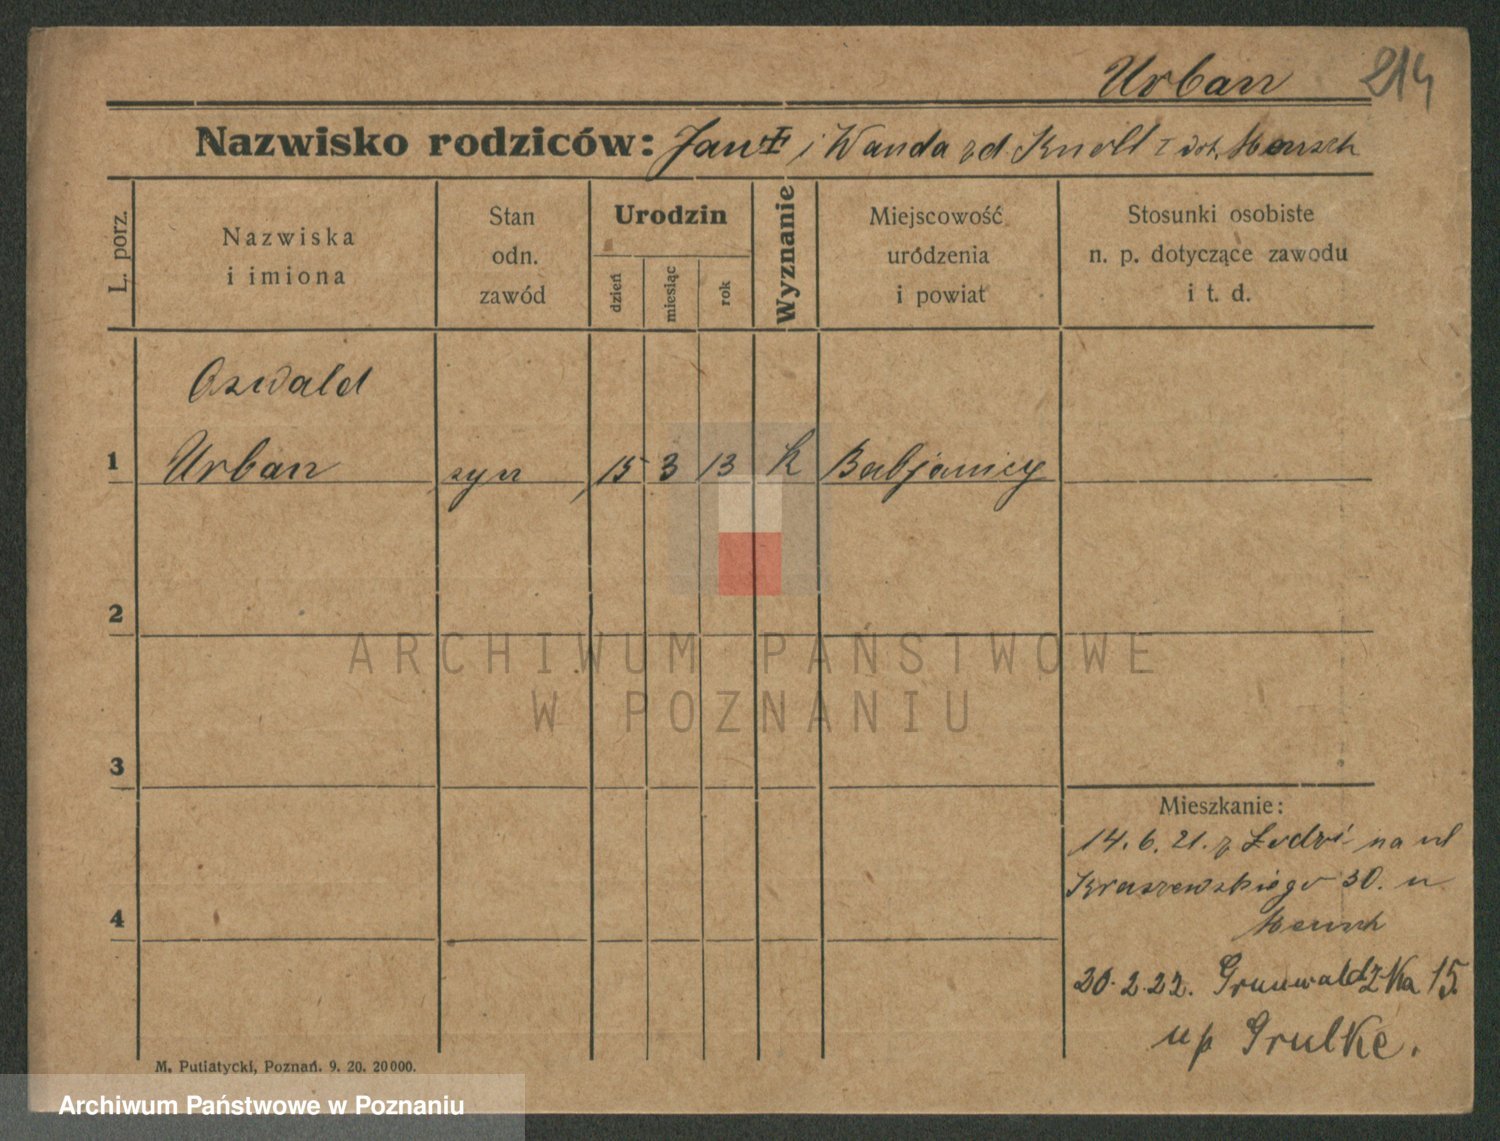 Urban 214
Nazwisko rodziców: Jan i Wanda zd Knoll
L. porz.
Nazwiska
i imiona
Stan
odn.
zawód
Urodzin
dzień
miesiąc
rok
Wyznanie
Miejscowość
uródzenia
i powiat
Stosunki osobiste
n. p. dotyczące zawodu
i t. d.
Oswald
1 Urban syn 15 3 13 k Babjanicy
2
3
4
Mieszkanie:
14. 6. 21. z Łodzi na ul
Kraszewskiego 30. u
20. 2. 22. Grunwaldzka 15.
u p Grulke.
M. Putiatycki, Poznań. 9. 20. 20000.
ARCHIWUM PAŃSTWOWE
W POZNANIU
Archiwum Państwowe w Poznaniu